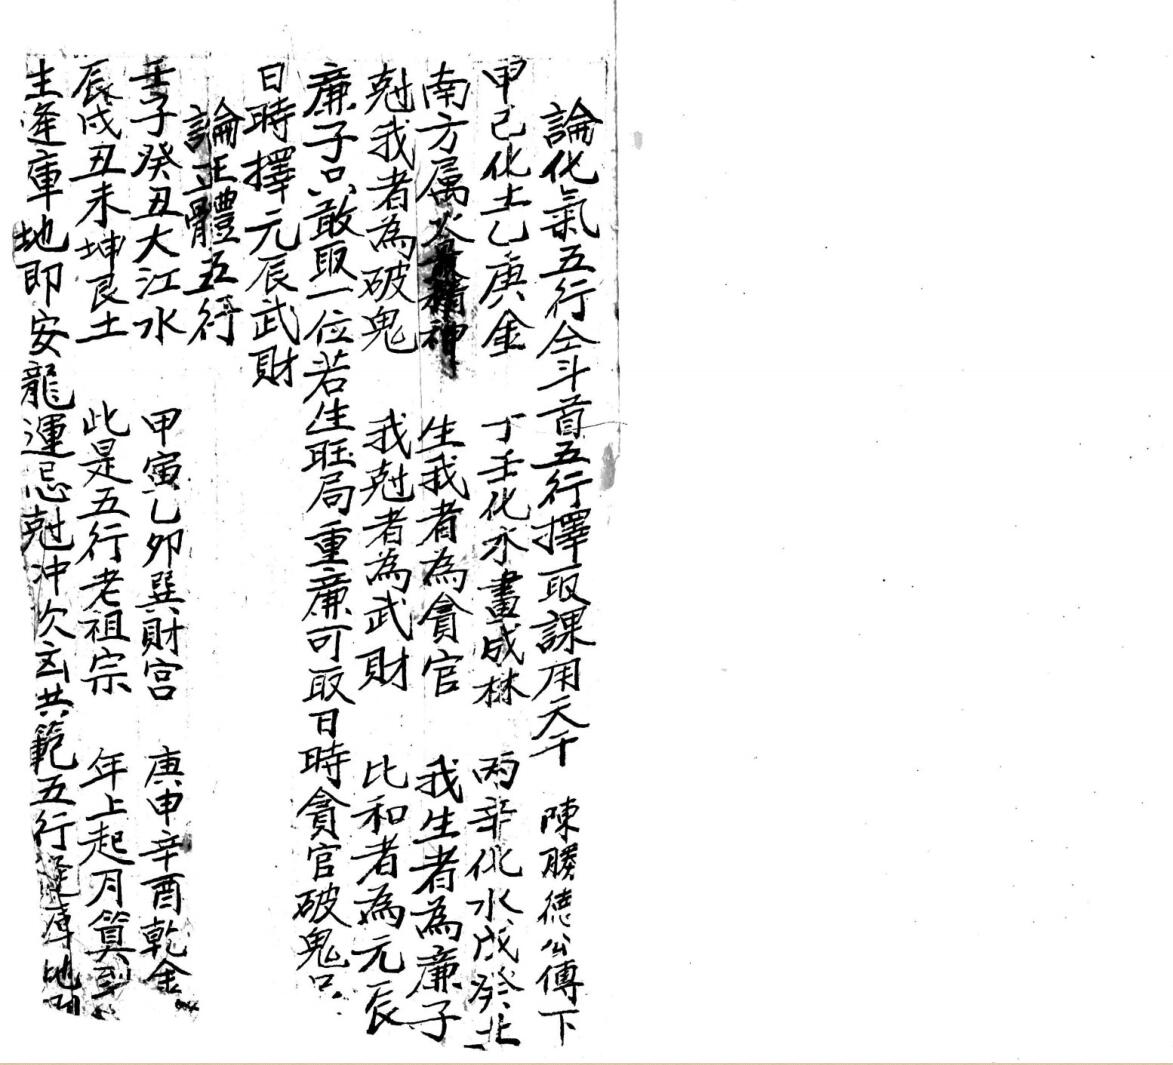 論化氣五行仝斗首五行擇取課用天干 陳勝德公傳下
甲己化土乙庚金 丁壬化木畫成林 丙辛化水戊癸北
南方属火 精神 生我者為貪官 我生者為廉子
尅我者為破鬼 我尅者為武財 比和者為元辰
廉子只敢取一位若生旺局重廉可取日時貪官破鬼只
日時擇元辰武財
論正體五行
壬子癸丑大江水 甲寅乙卯巽財宫 庚申辛酉乾金
辰戌丑未坤艮土 此是五行老祖宗 年上起月算到
生逢庫地即安龍運忌尅冲欠玄共範五行逢庫地